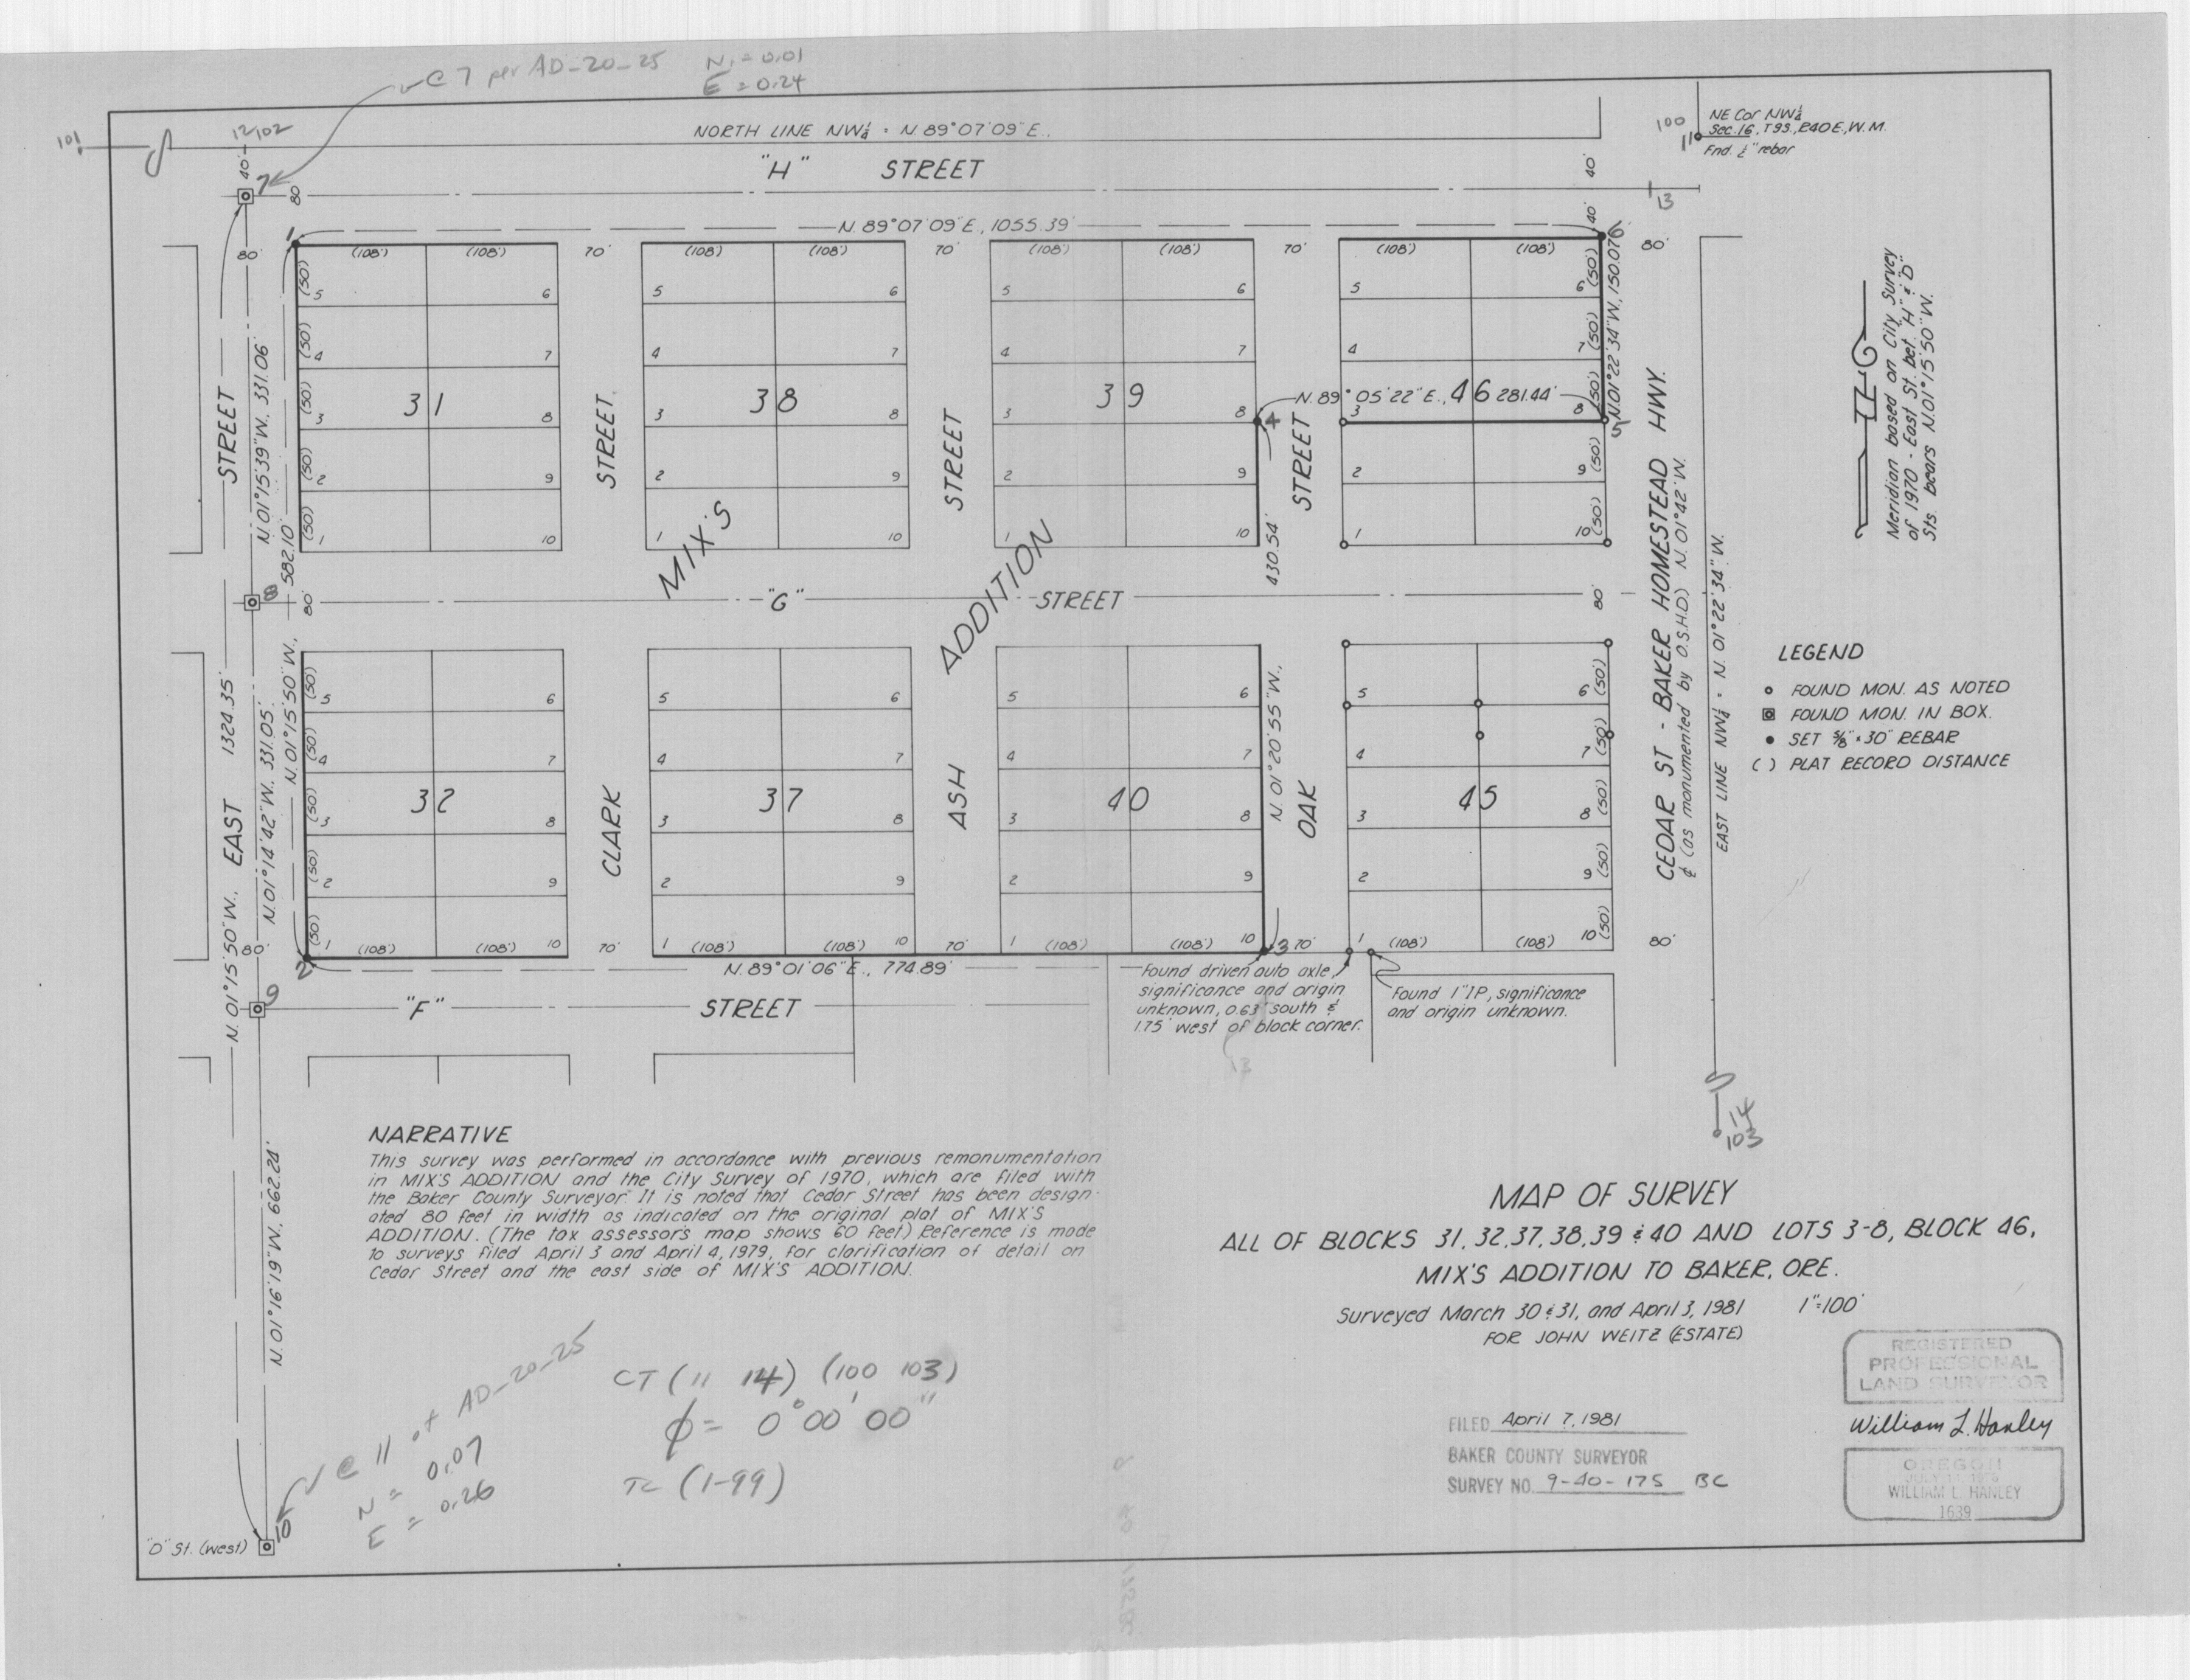 @ 7 per AD-20-25
N = 0.01
E = 0.24
101
12 102
NORTH LINE NW¼ · N. 89°07'09"E.
100
11
NE Cor NW¼
Sec. 16, T9S., R40E., W.M.
Fnd. ½" rebar
40'
7
80
"H" STREET
40'
13
N. 89°07'09"E., 1055.39'
40'
1
6
80'
(108') (108') 70' (108') (108') 70' (108') (108') 70' (108') (108')
80'
5 6 5 6 5 6 5 6
4 7 4 7 4 7 4 7
31 38 39 46
N. 89°05'22"E., 281.44'
3 8 3 8 3 8 3 8
4
5
2 9 2 9 2 9 2 9
1 10 1 10 1 10 1 10
(50) (50) (50) (50) (50)
(50) (50) (50) (50) (50)
N. 01°22'34"W., 150.07'
STREET
N. 01°15'39"W. 331.06'
582.10'
STREET
STREET
STREET
430.54'
MIX'S ADDITION
CEDAR ST - BAKER HOMESTEAD HWY.
℄ (as monumented by O.S.H.D.) N. 01°42'W.
EAST LINE NW¼ · N. 01°22'34"W.
Meridian based on City Survey
of 1970 - East St. bet. "H" & "D"
Sts. bears N. 01°15'50"W.
8
80'
"G" STREET
80'
5 6 5 6 5 6 5 6
4 7 4 7 4 7 4 7
32 37 40 45
3 8 3 8 3 8 3 8
2 9 2 9 2 9 2 9
1 10 1 10 1 10 1 10
(50) (50) (50) (50) (50)
(50) (50) (50) (50) (50)
EAST 1324.35'
N. 01°15'50"W.,
N. 01°14'42"W. 331.05'
N. 01°15'50"W.,
CLARK
ASH
N. 01°20'55"W.,
OAK
80'
(108') (108') 70' (108') (108') 70' (108') (108') 70' (108') (108')
80'
2
3
N. 89°01'06"E., 774.89'
9
"F" STREET
Found driven auto axle,
significance and origin
unknown, 0.63' south &
1.75' west of block corner.
Found 1" IP, significance
and origin unknown.
13
LEGEND
FOUND MON. AS NOTED
FOUND MON. IN BOX.
SET ⅝" x 30" REBAR
( ) PLAT RECORD DISTANCE
14
103
N. 01°16'19"W., 662.24'
NARRATIVE
This survey was performed in accordance with previous remonumentation
in MIX'S ADDITION and the City Survey of 1970, which are filed with
the Baker County Surveyor. It is noted that Cedar Street has been design-
ated 80 feet in width as indicated on the original plat of MIX'S
ADDITION. (The tax assessor's map shows 60 feet) Reference is made
to surveys filed April 3 and April 4, 1979, for clarification of detail on
Cedar Street and the east side of MIX'S ADDITION.
MAP OF SURVEY
ALL OF BLOCKS 31, 32, 37, 38, 39 & 40 AND LOTS 3-8, BLOCK 46,
MIX'S ADDITION TO BAKER, ORE.
Surveyed March 30 & 31, and April 3, 1981 1"=100'
FOR JOHN WEITZ (ESTATE)
@ 11 of AD-20-25
N = 0.07
E = 0.26
CT (11 14) (100 103)
φ = 0°00'00"
TC (1-99)
10
"D" St. (west)
FILED April 7, 1981
BAKER COUNTY SURVEYOR
SURVEY NO. 9-40-175 BC
REGISTERED
PROFESSIONAL
LAND SURVEYOR
William L. Hanley
OREGON
WILLIAM L. HANLEY
1639